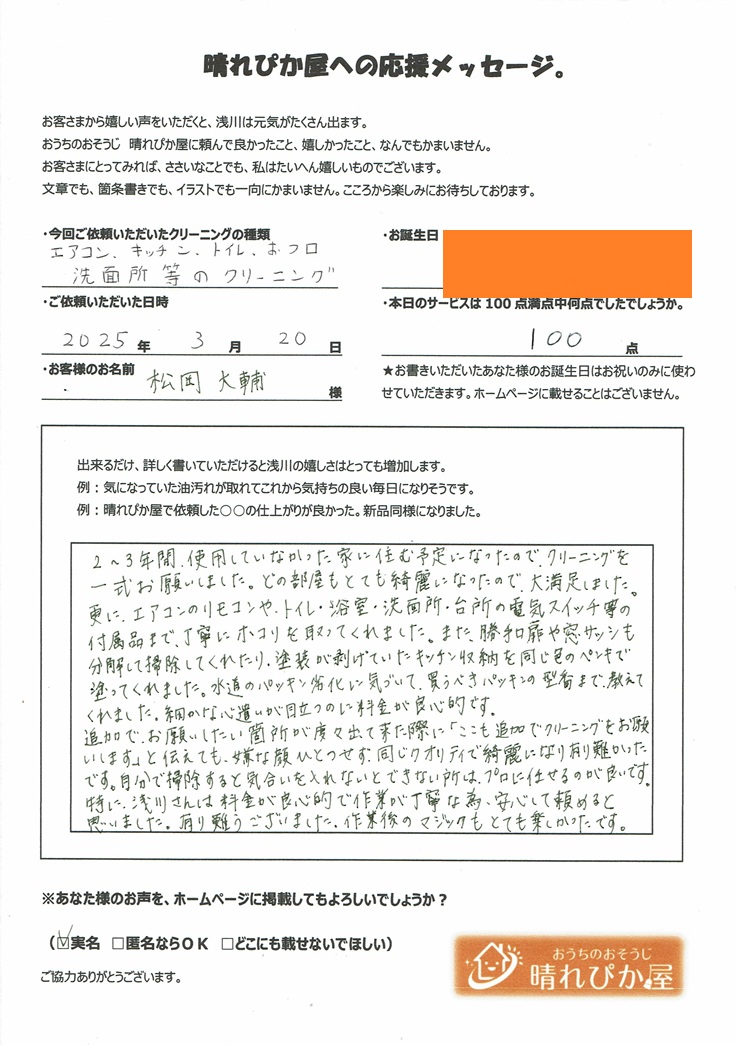 晴れぴか屋への応援メッセージ。
お客さまから嬉しい声をいただくと、浅川は元気がたくさん出ます。
おうちのおそうじ　晴れぴか屋に頼んで良かったこと、嬉しかったこと、なんでもかまいません。
お客さまにとってみれば、ささいなことでも、私はたいへん嬉しいものでございます。
文章でも、箇条書きでも、イラストでも一向にかまいません。こころから楽しみにお待ちしております。
・今回ご依頼いただいたクリーニングの種類
エアコン、キッチン、トイレ、おフロ
洗面所等のクリーニング
・お誕生日
・ご依頼いただいた日時
2025年 3月 20日
・本日のサービスは100点満点中何点でしたでしょうか。
100点
・お客様のお名前
松岡 大輔 様
★お書きいただいたあなた様のお誕生日はお祝いのみに使わ
せていただきます。ホームページに載せることはございません。
出来るだけ、詳しく書いていただけると浅川の嬉しさはとっても増加します。
例：気になっていた油汚れが取れてこれから気持ちの良い毎日になりそうです。
例：晴れぴか屋で依頼した○○の仕上がりが良かった。新品同様になりました。
2～3年間、使用していなかった家に住む予定になったので、クリーニングを
一式お願いしました。どの部屋もとても綺麗になったので、大満足しました。
更に、エアコンのリモコンや、トイレ・浴室・洗面所・台所の電気スイッチ等の
付属品まで、丁寧にホコリを取ってくれました。また、勝手扉や窓サッシも
分解して掃除してくれたり、塗装が剥げていたキッチン収納を同じ色のペンキで
塗ってくれました。水道のパッキン劣化に気づいて、買うべきパッキンの型番まで、教えて
くれました。細かな心遣いが目立つのに料金が良心的です。
追加で、お願いしたい箇所が度々出て来た際に「ここも追加でクリーニングをお願
いします」と伝えても、嫌な顔ひとつせず、同じクオリティで綺麗になり有り難かった
です。自分で掃除すると気合いを入れないとできない所は、プロに任せるのが良いです。
特に、浅川さんは料金が良心的で作業が丁寧な為、安心して頼めると
思いました。有り難うございました。作業後のマジックもとても楽しかったです。
※あなた様のお声を、ホームページに掲載してもよろしいでしょうか？
（☑実名　□匿名ならＯＫ　□どこにも載せないでほしい）
ご協力ありがとうございます。
おうちのおそうじ
晴れぴか屋